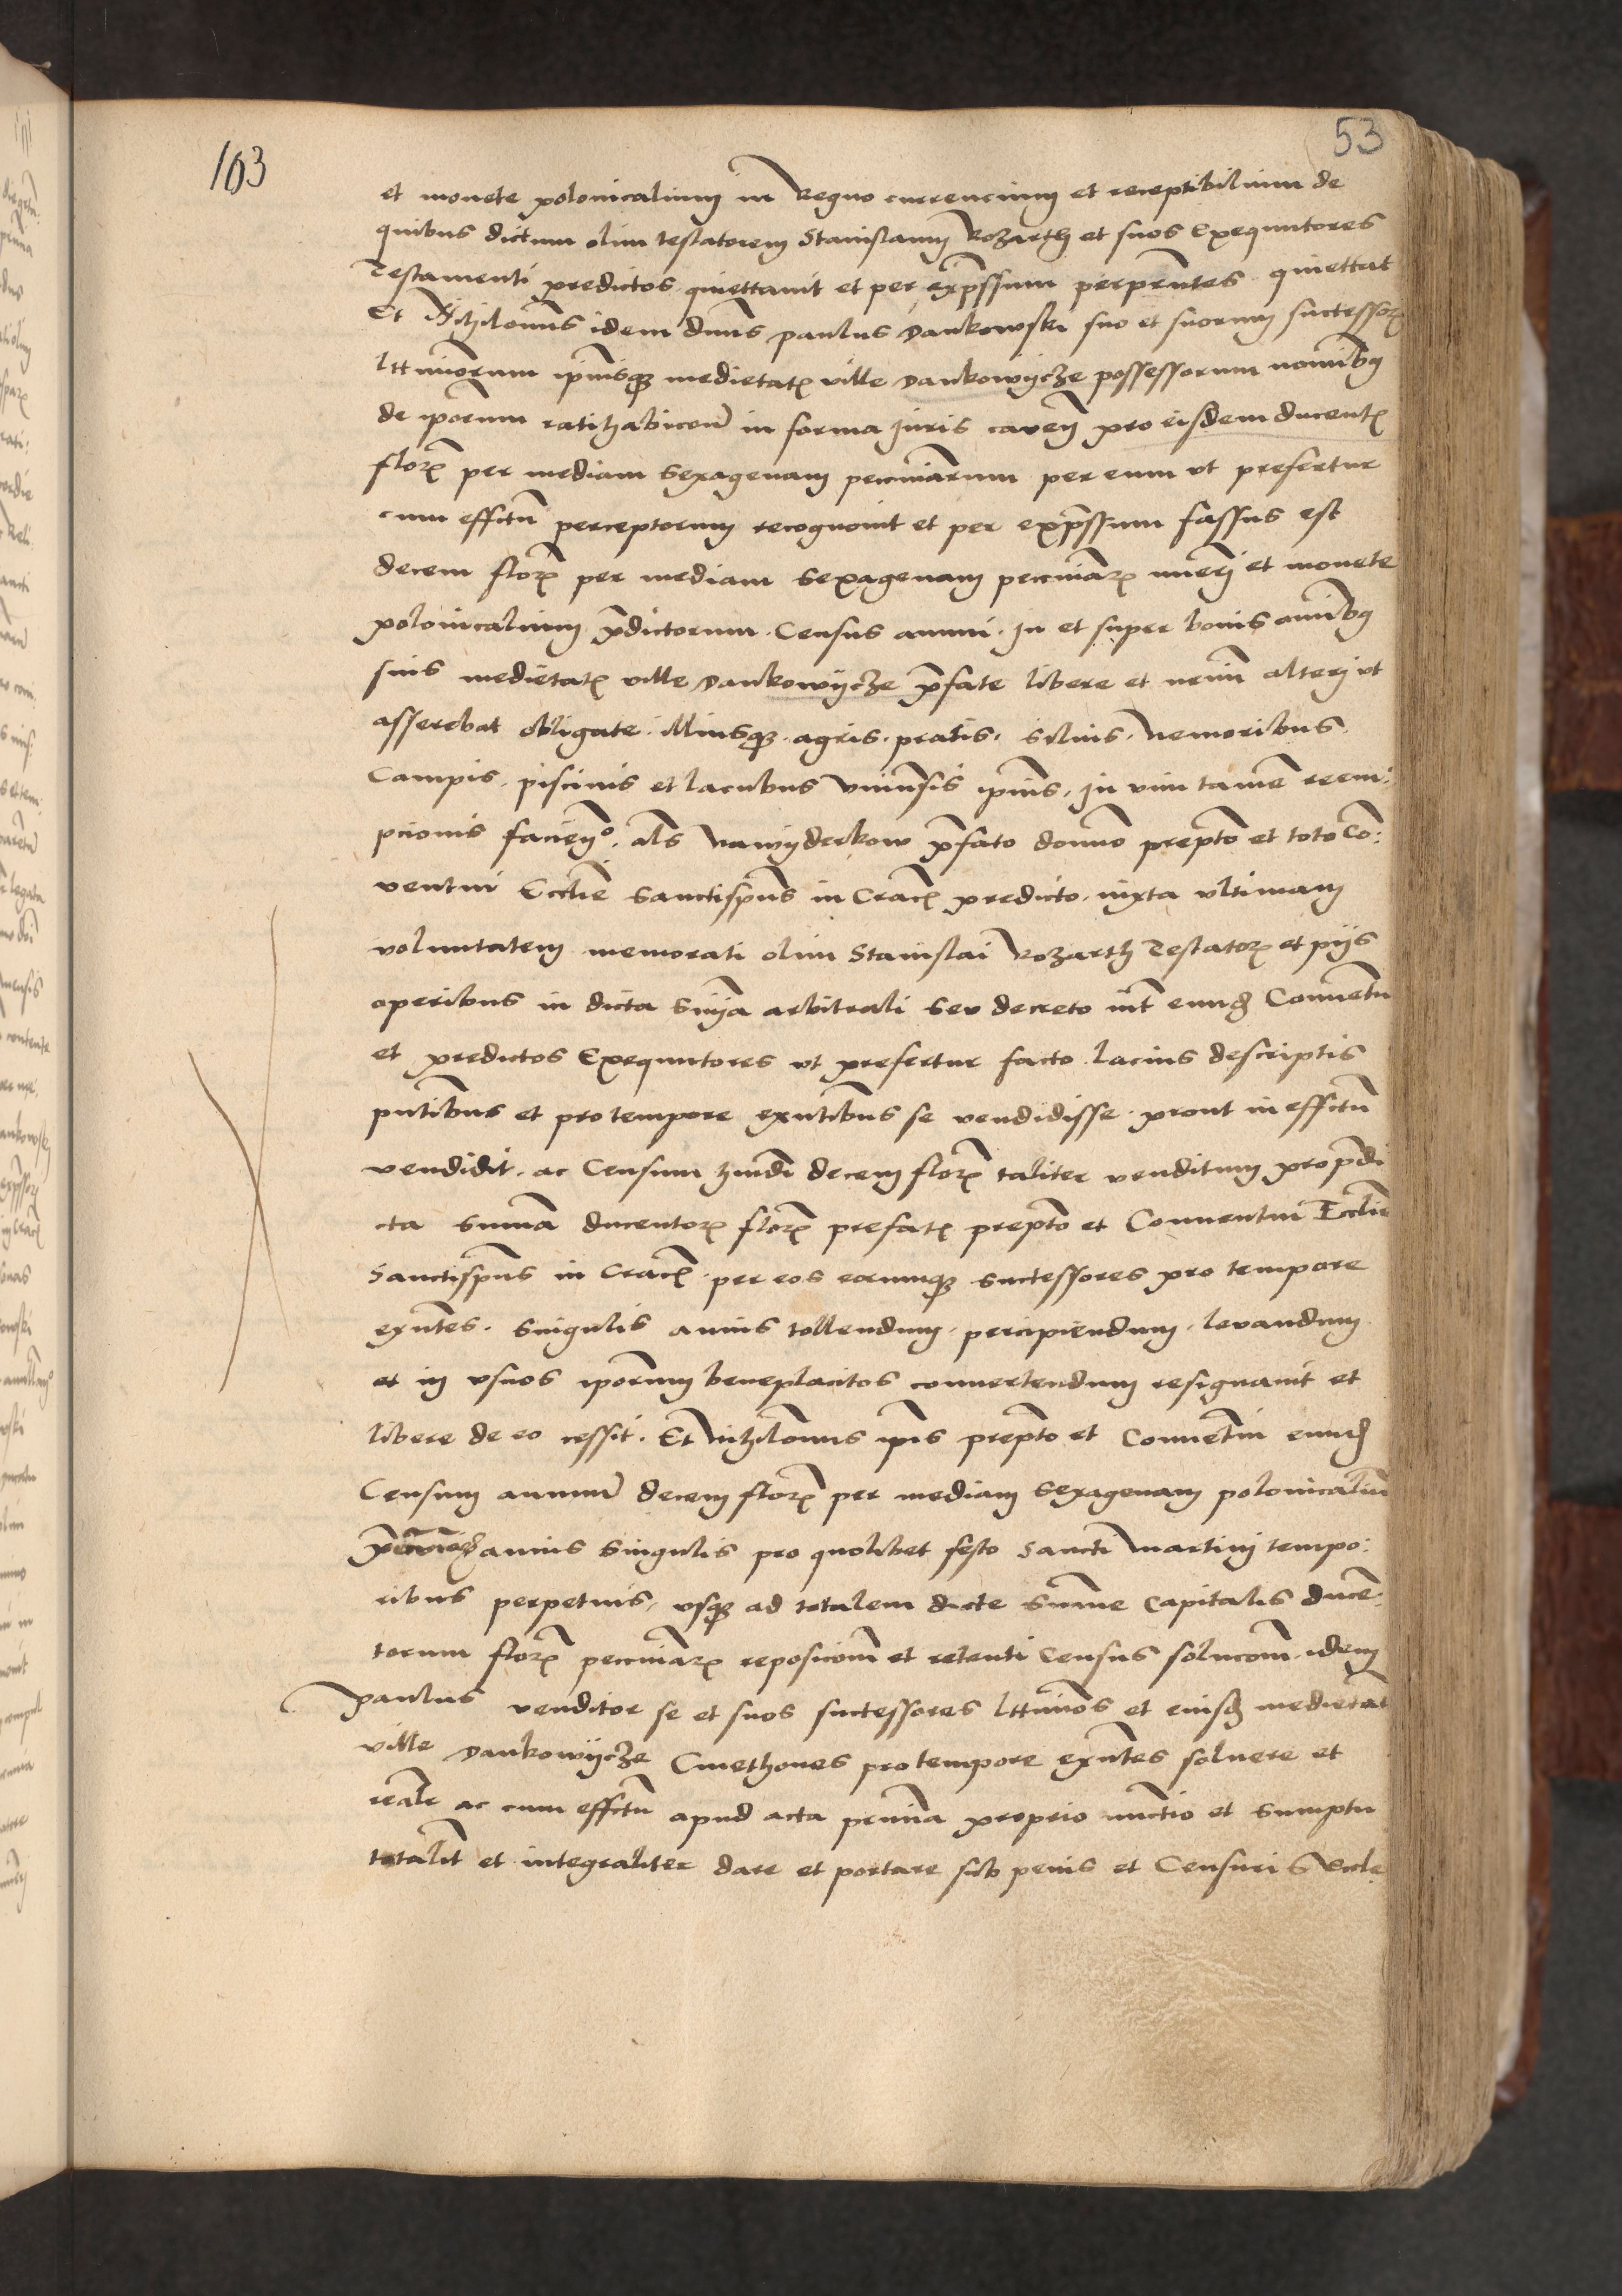 53
103
et monete polonicalium in Regno currencium et receptibilium de
quibus dictum olim testatorem Stanislaum Rozarth et suos Exequutores
Testamenti predictos quiettauit et per exp̄ssum per pñtes quiettat
Et Nihilomĩs idem dñus paulus Dankowski suo et suorum successorꝝ
lttimorum ip̄iusqꝫ medietatꝭ ville Dankowijcze possessorum nomĩbꝰ
de ip̄orum ratihabicõe in forma Juris caueñ pro eisdem ducentꝭ
florꝭ per mediam Sexagenam pecuniarum per eum vt prefertur
cum effctũ perceptorum recognouit et per exp̄ssum fassus est
decem florꝭ per mediam Sexagenam pecuniarꝝ nũeri et monete
polonicalium p̄dictorum Census annui in et super bonis omĩbꝰ
suis medietatꝭ ville Dankowijcze p̄fate libere et nemĩ alteri vt
asserebat obligate illiusqꝫ agris pratis siluis Nemoribus
Campis piscinis et lacubus Vniuersis ip̄ius in vim tamẽ reem:
pcionis facieñ als̃ nawyderkow p̄fato domno prep̃to et toto Co:
uentui Ecclie Sanctispũs in Cracꝭ predicto iuxta vltimam
voluntatem memorati olim Stanislai Rozarth Testatorꝭ et pijs
operibus in dicta Snĩa arbitrali seu decreto int̃ eundꝫ Conuentũ
et predictos Exequutores vt prefertur facto lacius descriptis
pñtibus et pro tempore exñtibus se vendidisse prout in effctũ
vendidit ac Censum hmõi decem florꝭ taliter venditum pro p̄di
cta Summa ducentorꝝ florꝭ prefatꝭ prep̃to et Conuentui Ecclie
Sanctispũs in Cracꝭ per eos eorumqꝫ successores pro tempore
exñtes Singulis annis tollendum percipiendum leuandum
et in vsuos ip̄orum beneplacitos conuertendum resignauit et
libere de eo cessit Et Nihilomĩs ip̄is prep̃to et Conuentui eundꝫ
Censum annuũ decem florꝭ per mediam Sexagenam polonicaliũ
annis Singulis pro quolibet festo Sancti Martini tempo:
ribus perpetuis vsqꝫ ad totalem dicte Summe Capitalis ducẽ
torum florꝭ pecuniarꝝ reposicõem et retenti Census solucõem idem
paulus venditor se et suos successores lttimos et eiusdꝫ medietatꝭ
ville Dankowijcze Cmethones pro tempore exñtes soluere et
realr̃ ac cum effctũ apud acta pñcia proprio nuncio et Sumptu
totalit̃ et integraliter dare et portare sub penis et Censuris Eccle